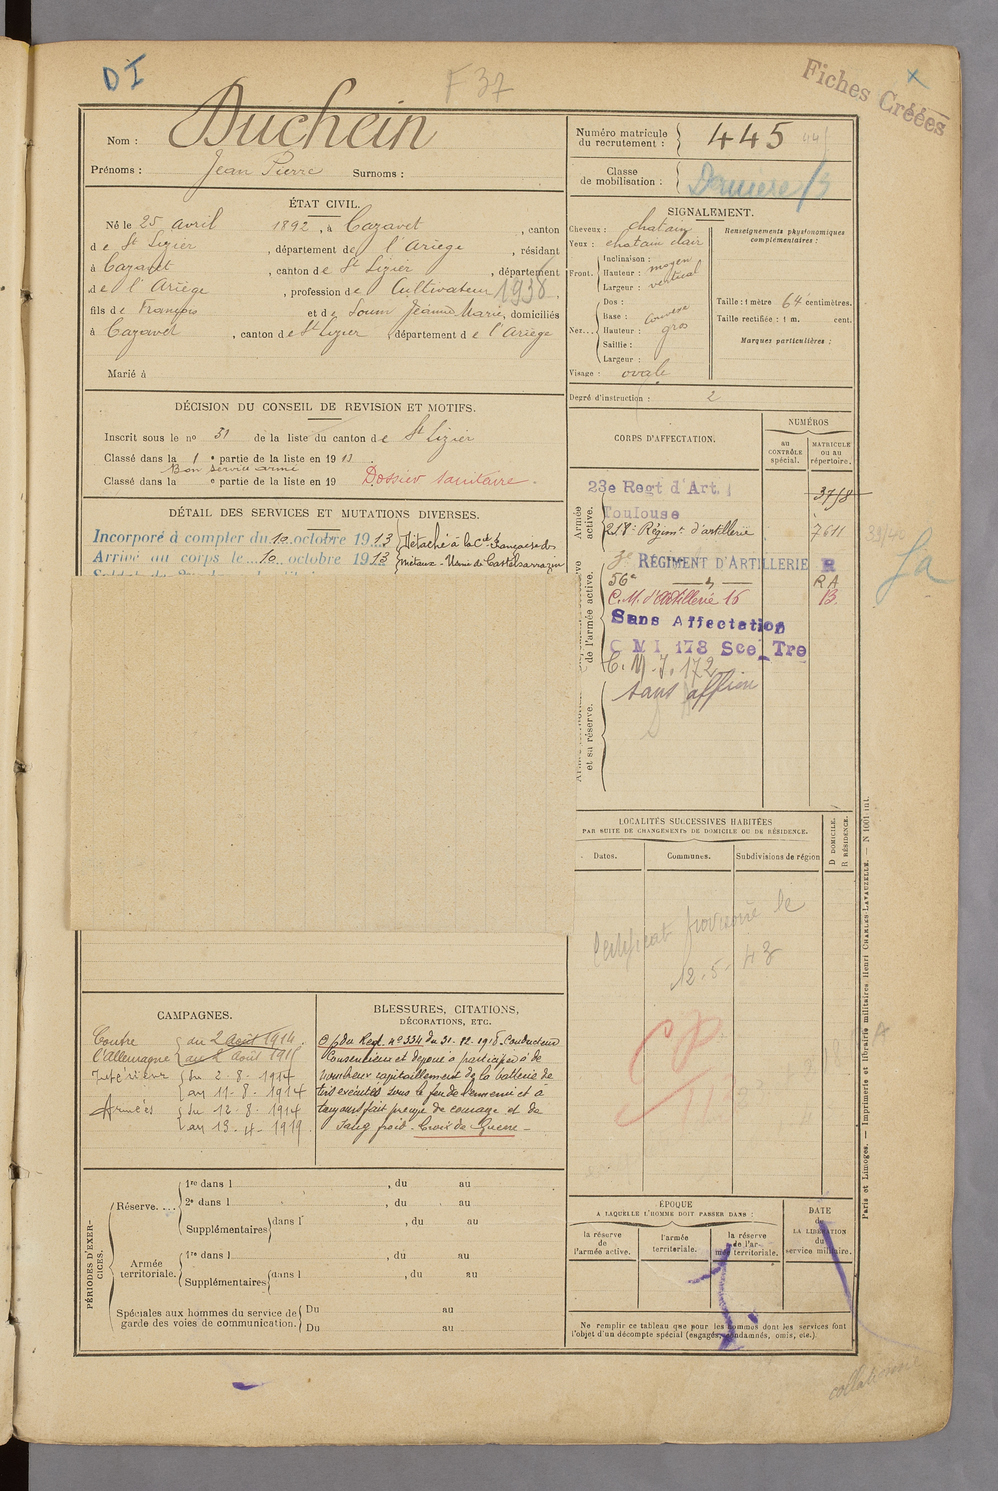 DI
F 37
Fiches Créées
Nom : Duchein
Prénoms : Jean Pierre Surnoms :
Numéro matricule du recrutement : 445
Classe de mobilisation : Dernière
ÉTAT CIVIL.
Né le 25 avril 1892, à Cazavet, canton
de St Lizier, département de l'Ariège, résidant
à Cazavet, canton de St Lizier, département
de l'Ariège, profession de Cultivateur 1938.
fils de François et de Soum Jeanne Marie, domiciliés
à Cazavet, canton de St Lizier, département de l'Ariège
Marié à
SIGNALEMENT.
Cheveux : chatain
Yeux : chatain clair
Front. Inclinaison :
Hauteur : moyen
Largeur : vertical
Nez... Dos :
Base :
Hauteur : gros
Saillie :
Largeur :
Visage : ovale
Renseignements physionomiques complémentaires :
Taille : 1 mètre 64 centimètres.
Taille rectifiée : 1 m. cent.
Marques particulières :
Degré d'instruction : 2
DÉCISION DU CONSEIL DE REVISION ET MOTIFS.
Inscrit sous le nº 31 de la liste du canton de St Lizier
Classé dans la 1 e partie de la liste en 1913
Bon service armé
Classé dans la e partie de la liste en 19 Dossier sanitaire.
DÉTAIL DES SERVICES ET MUTATIONS DIVERSES.
Incorporé à compter du 10 octobre 1913
Arrivé au corps le 10 octobre 1913
Détaché à la Cie Française des
Métaux - Usine de Castelsarrazin
CORPS D'AFFECTATION.
NUMÉROS
au CONTRÔLE spécial.
MATRICULE ou au répertoire.
Armée active.
23e Regt d'Art.
Toulouse
218e Régimt d'artillerie 7611
RÉGIMENT D'ARTILLERIE R
de l'armée active.
56e RA
C.M. d'Artillerie 16 B.
Sans Affectation
C M I 173 Sce Tre
C.M.I. 172
sans affion
et sa réserve.
LOCALITÉS SUCCESSIVES HABITÉES
PAR SUITE DE CHANGEMENTS DE DOMICILE OU DE RÉSIDENCE.
Dates.
Communes.
Subdivisions de région
D DOMICILE.
R RÉSIDENCE.
Certificat provisoire le
12-5-43
CAMPAGNES.
Contre l'Allemagne du 2 août 1914
Intérieur du 2-8-1914
au 11-8-1914
Armées du 12-8-1914
au 13-4-1919
BLESSURES, CITATIONS,
DÉCORATIONS, ETC.
du Regt nº 334 du 31-12-1918. Conducteur
Consentieux et dévoué a participé à de
nombreux ravitaillement de la batterie de
tirs exécutés sous le feu de l'ennemi et a
toujours fait preuve de courage et de
sang froid. Croix de Guerre -
PÉRIODES D'EXERCICES.
Réserve....
1re dans l , du au
2e dans l , du au
Supplémentaires dans l , du au
Armée territoriale.
1re dans l , du au
Supplémentaires dans l , du au
Spéciales aux hommes du service de garde des voies de communication.
Du au
Du au
ÉPOQUE
A LAQUELLE L'HOMME DOIT PASSER DANS :
la réserve de l'armée active.
l'armée territoriale.
la réserve de l'armée territoriale.
DATE de LA LIBÉRATION du service militaire.
Ne remplir ce tableau que pour les hommes dont les services font
l'objet d'un décompte spécial (engagés, condamnés, omis, etc.).
Paris et Limoges. — Imprimerie et librairie militaires Henri CHARLES-LAVAUZELLE. — N 1001 int.
collationné